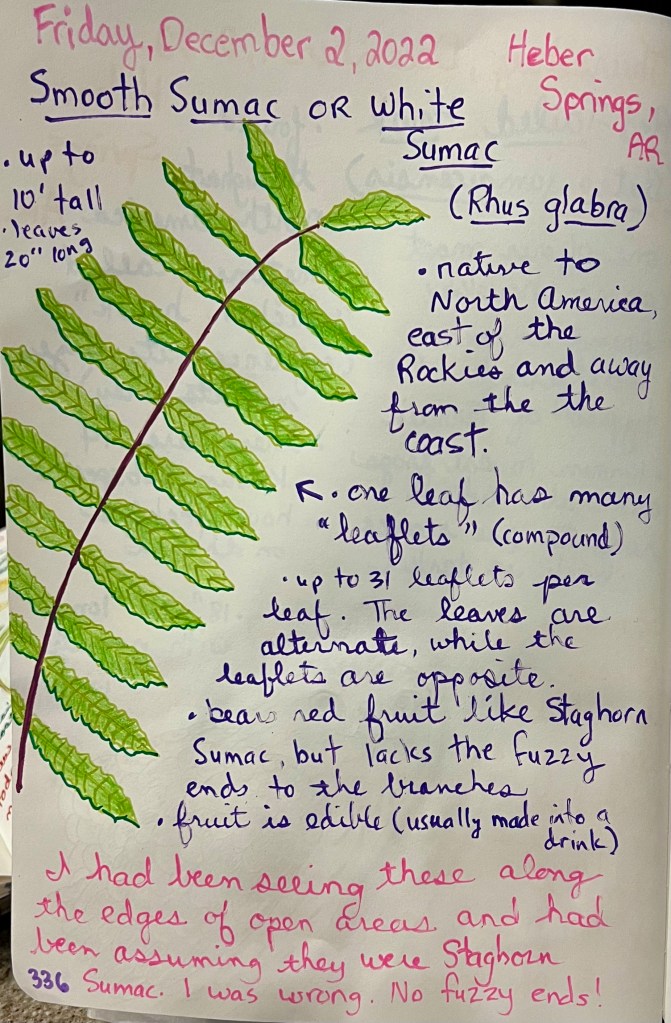 Friday, December 2, 2022
Heber
Springs,
AR
Smooth Sumac OR White
Sumac
(Rhus glabra)
• up to
10' tall
• leaves
20" long
• native to
North America,
east of the
Rockies and away
from the the
coast.
↖ • one leaf has many
"leaflets" (compound)
• up to 31 leaflets per
leaf. The leaves are
alternate, while the
leaflets are opposite.
• bears red fruit like Staghorn
Sumac, but lacks the fuzzy
ends to the branches
• fruit is edible (usually made into a
drink)
I had been seeing these along
the edges of open areas and had
been assuming they were Staghorn
336 Sumac. I was wrong. No fuzzy ends!